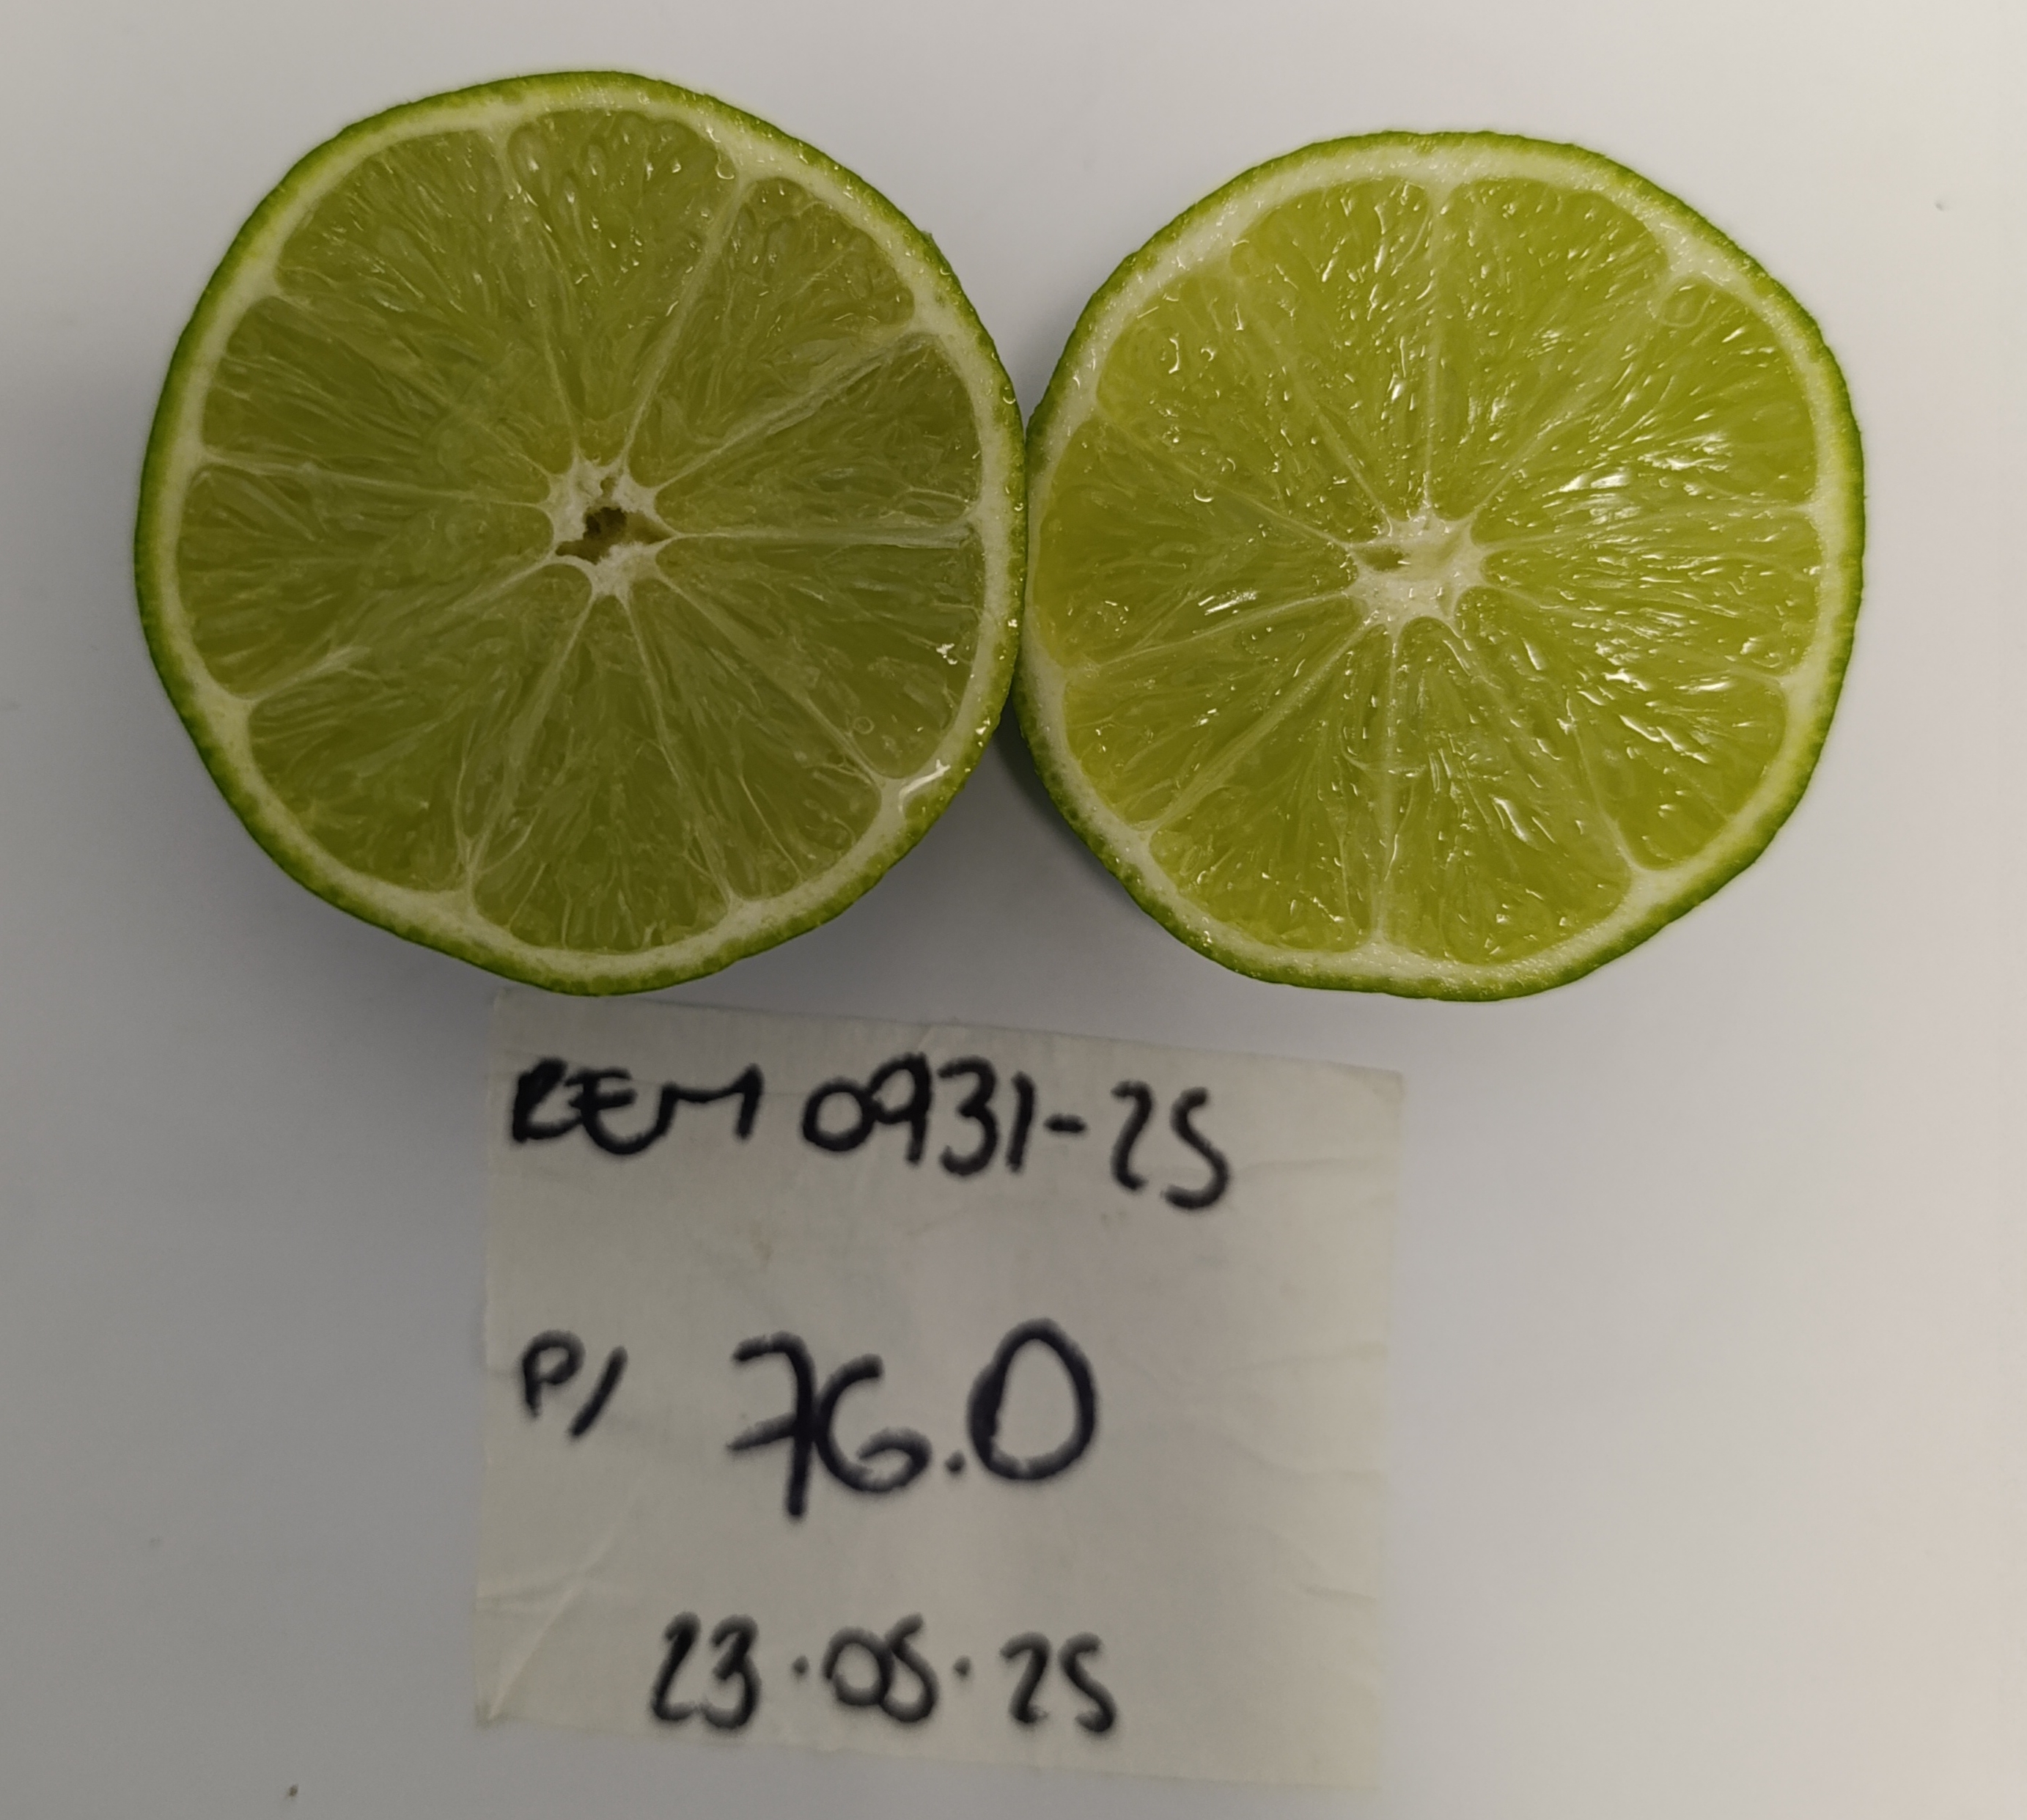 REM 0931-25
P/ 76.0
23.05.25